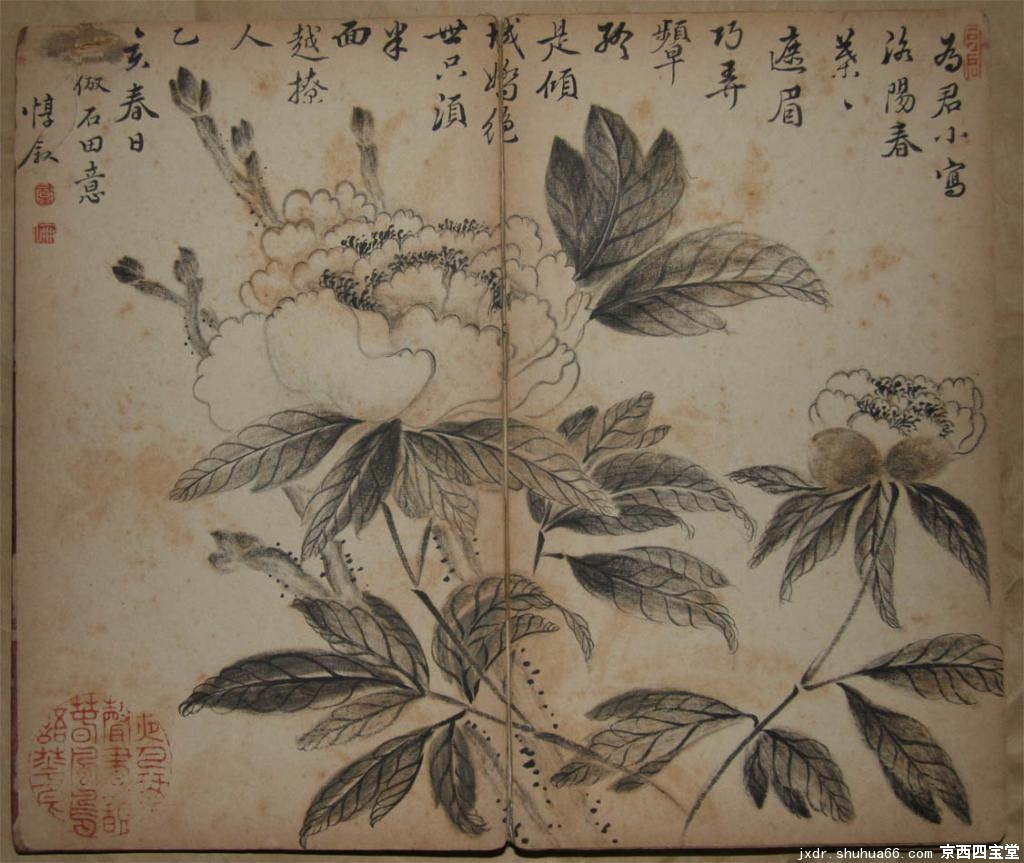 為君小寫
洛陽春
葉〻
遮眉
巧弄
顰
終
是傾
城嬌絕
世只須
半
面
越撩
人
乙
亥春日
倣石田意
惇叙
jxdr.shuhua66.com 京西四宝堂